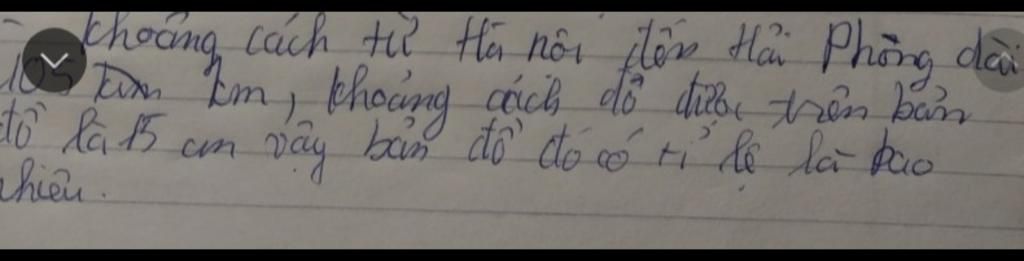 khoảng cách từ Hà nôi đến Hải Phòng dài
105 km, khoảng cách đồ được trên bản
đồ là 15 cm vậy bản đồ đó có tỉ lệ là bao
nhiêu.